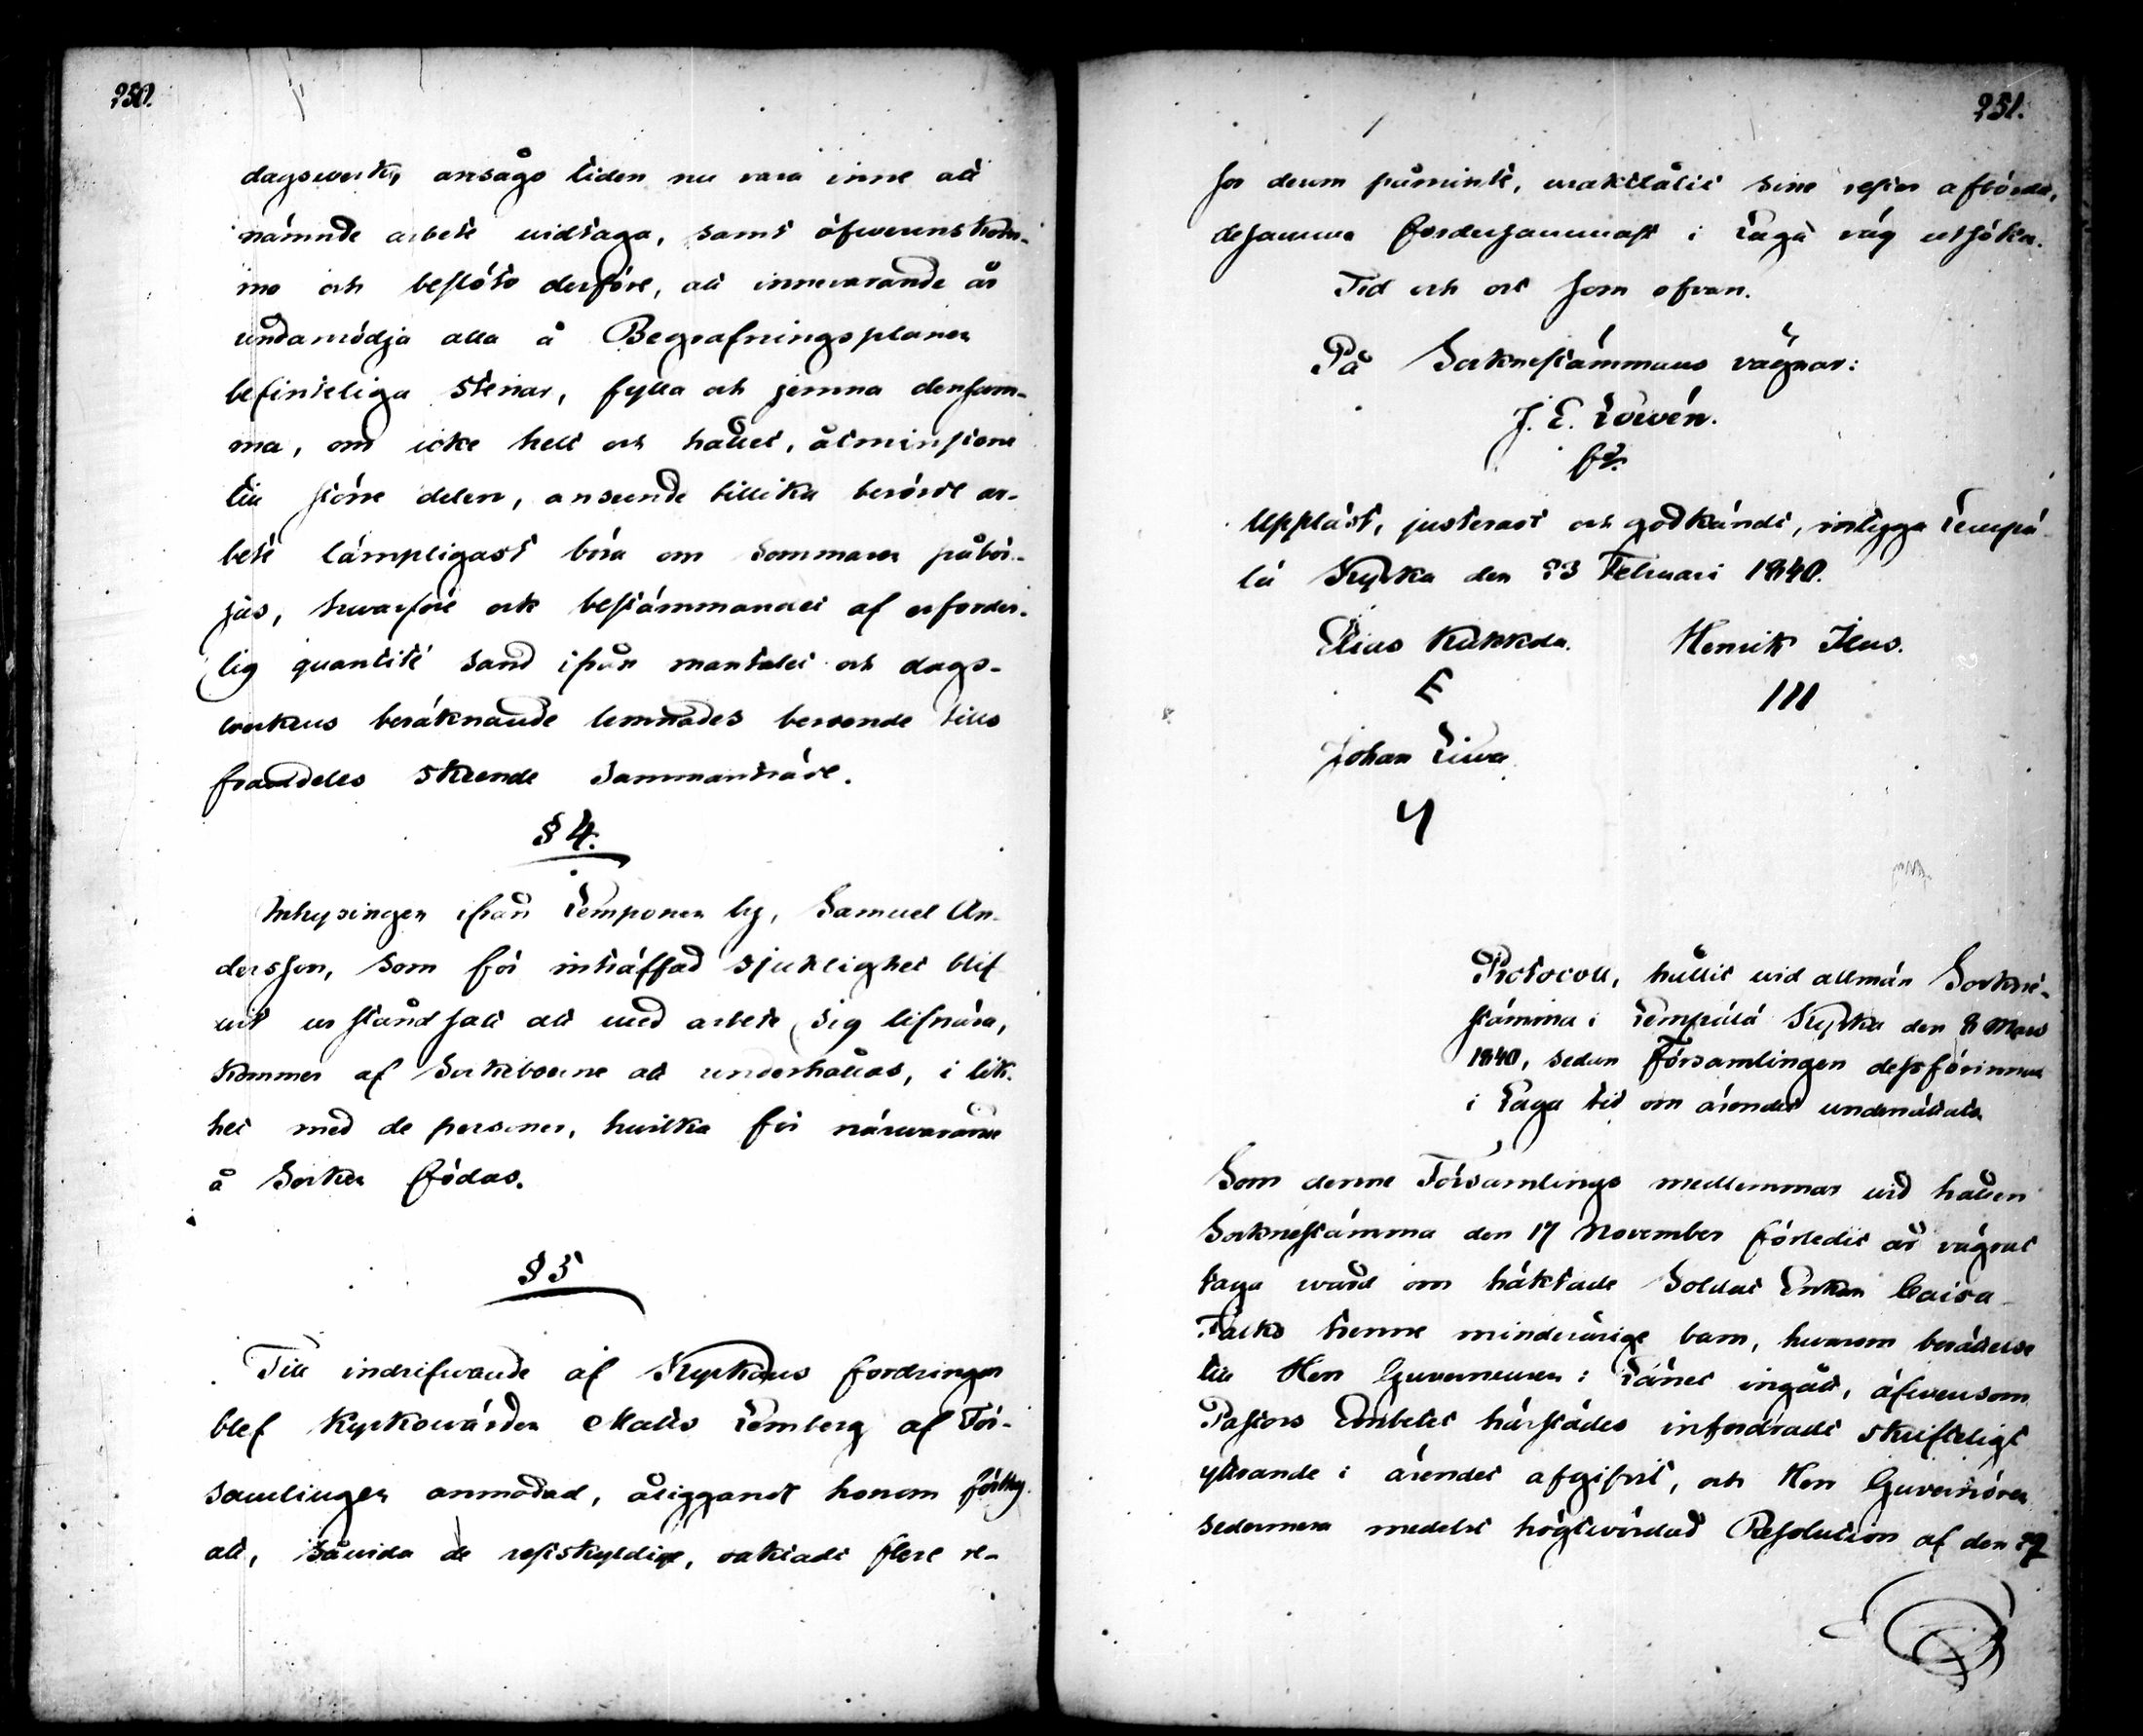 250.
dagswerk, ansågo tiden nu vara inne att
nämnde arbete vidtaga, samt öfwerenskom-
mo och beslöto derföre, att innewarande år
undanrödja alla å Begrafningsplanen
befinteliga stenar, fylla och jemna densam-
ma, om icke helt och hållet, åtminstone
till större delen, anseende tillika berörde ar-
bete lämpligast böra om sommaren påbör-
jas, hwarföre och bestämmandet af erforder-
lig quantité sand ifrån mantalet och dags-
werkens beräknande lemnades beroende tills
framdeles skeende sammanträde.
§ 4.
Inhysingen ifrån Lemponen by, Samuel An-
dersson, som för inträffad sjuklighet blif
wit ur stånd satt att med arbete sig lifnära,
kommer af Sockneboerne att underhållas, i lik-
het med de personer, hvilka för närwarande
å Socknen födas.
§ 5
Till indrifwande af Kyrkans fordringar
blef Kyrkowärden Matts Lemberg af För-
samlingen anmodad, åliggandt honom
att, såwida de restskyldige, oaktadt flere re-
251.
sor derom påminte, uraktlåtit sine rester afbörda,
desamma fordersammast i Laga väg utsöka.
Tid och ort som ofvan.
På Socknestämmans vägnar:
J. E. Lowén.
Uppläst, justerast och godkändt, intygga Lempä-
lä Kyrka den 23 Februari 1840.
Elias Kukkola. Henrik Ilus.
E III
Johan Liwa
Protocoll, hållit vid allmän Sockne-
stämma i Lempälä Kyrka den 8 Mars
1840, sedan Församlingen dessförinnan
i Laga tid om ärendet underrättats.
Som denne Församlings medlemmar vid hållen
Socknestämma den 17 November förledit år vägrat
taga wård om häktade Soldat Enkan Caisa
Falks trenne minderårige barn, hwarom berättelse
till Herr Guverneuren i Länet ingått, äfwensom
Pastors Embetet härstädes infordradt skrifteligt
yttrande i ärendet afgifvit, och Herr Guvernören
sedermera medelst högtwördad Resolution af den 27